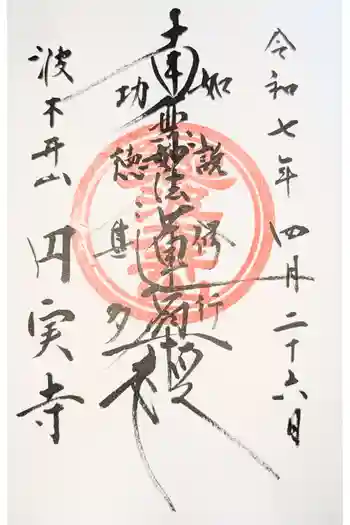 令和七年四月二十六日
如説修行
南無妙法蓮華経
功徳甚多
波木井山
円実寺